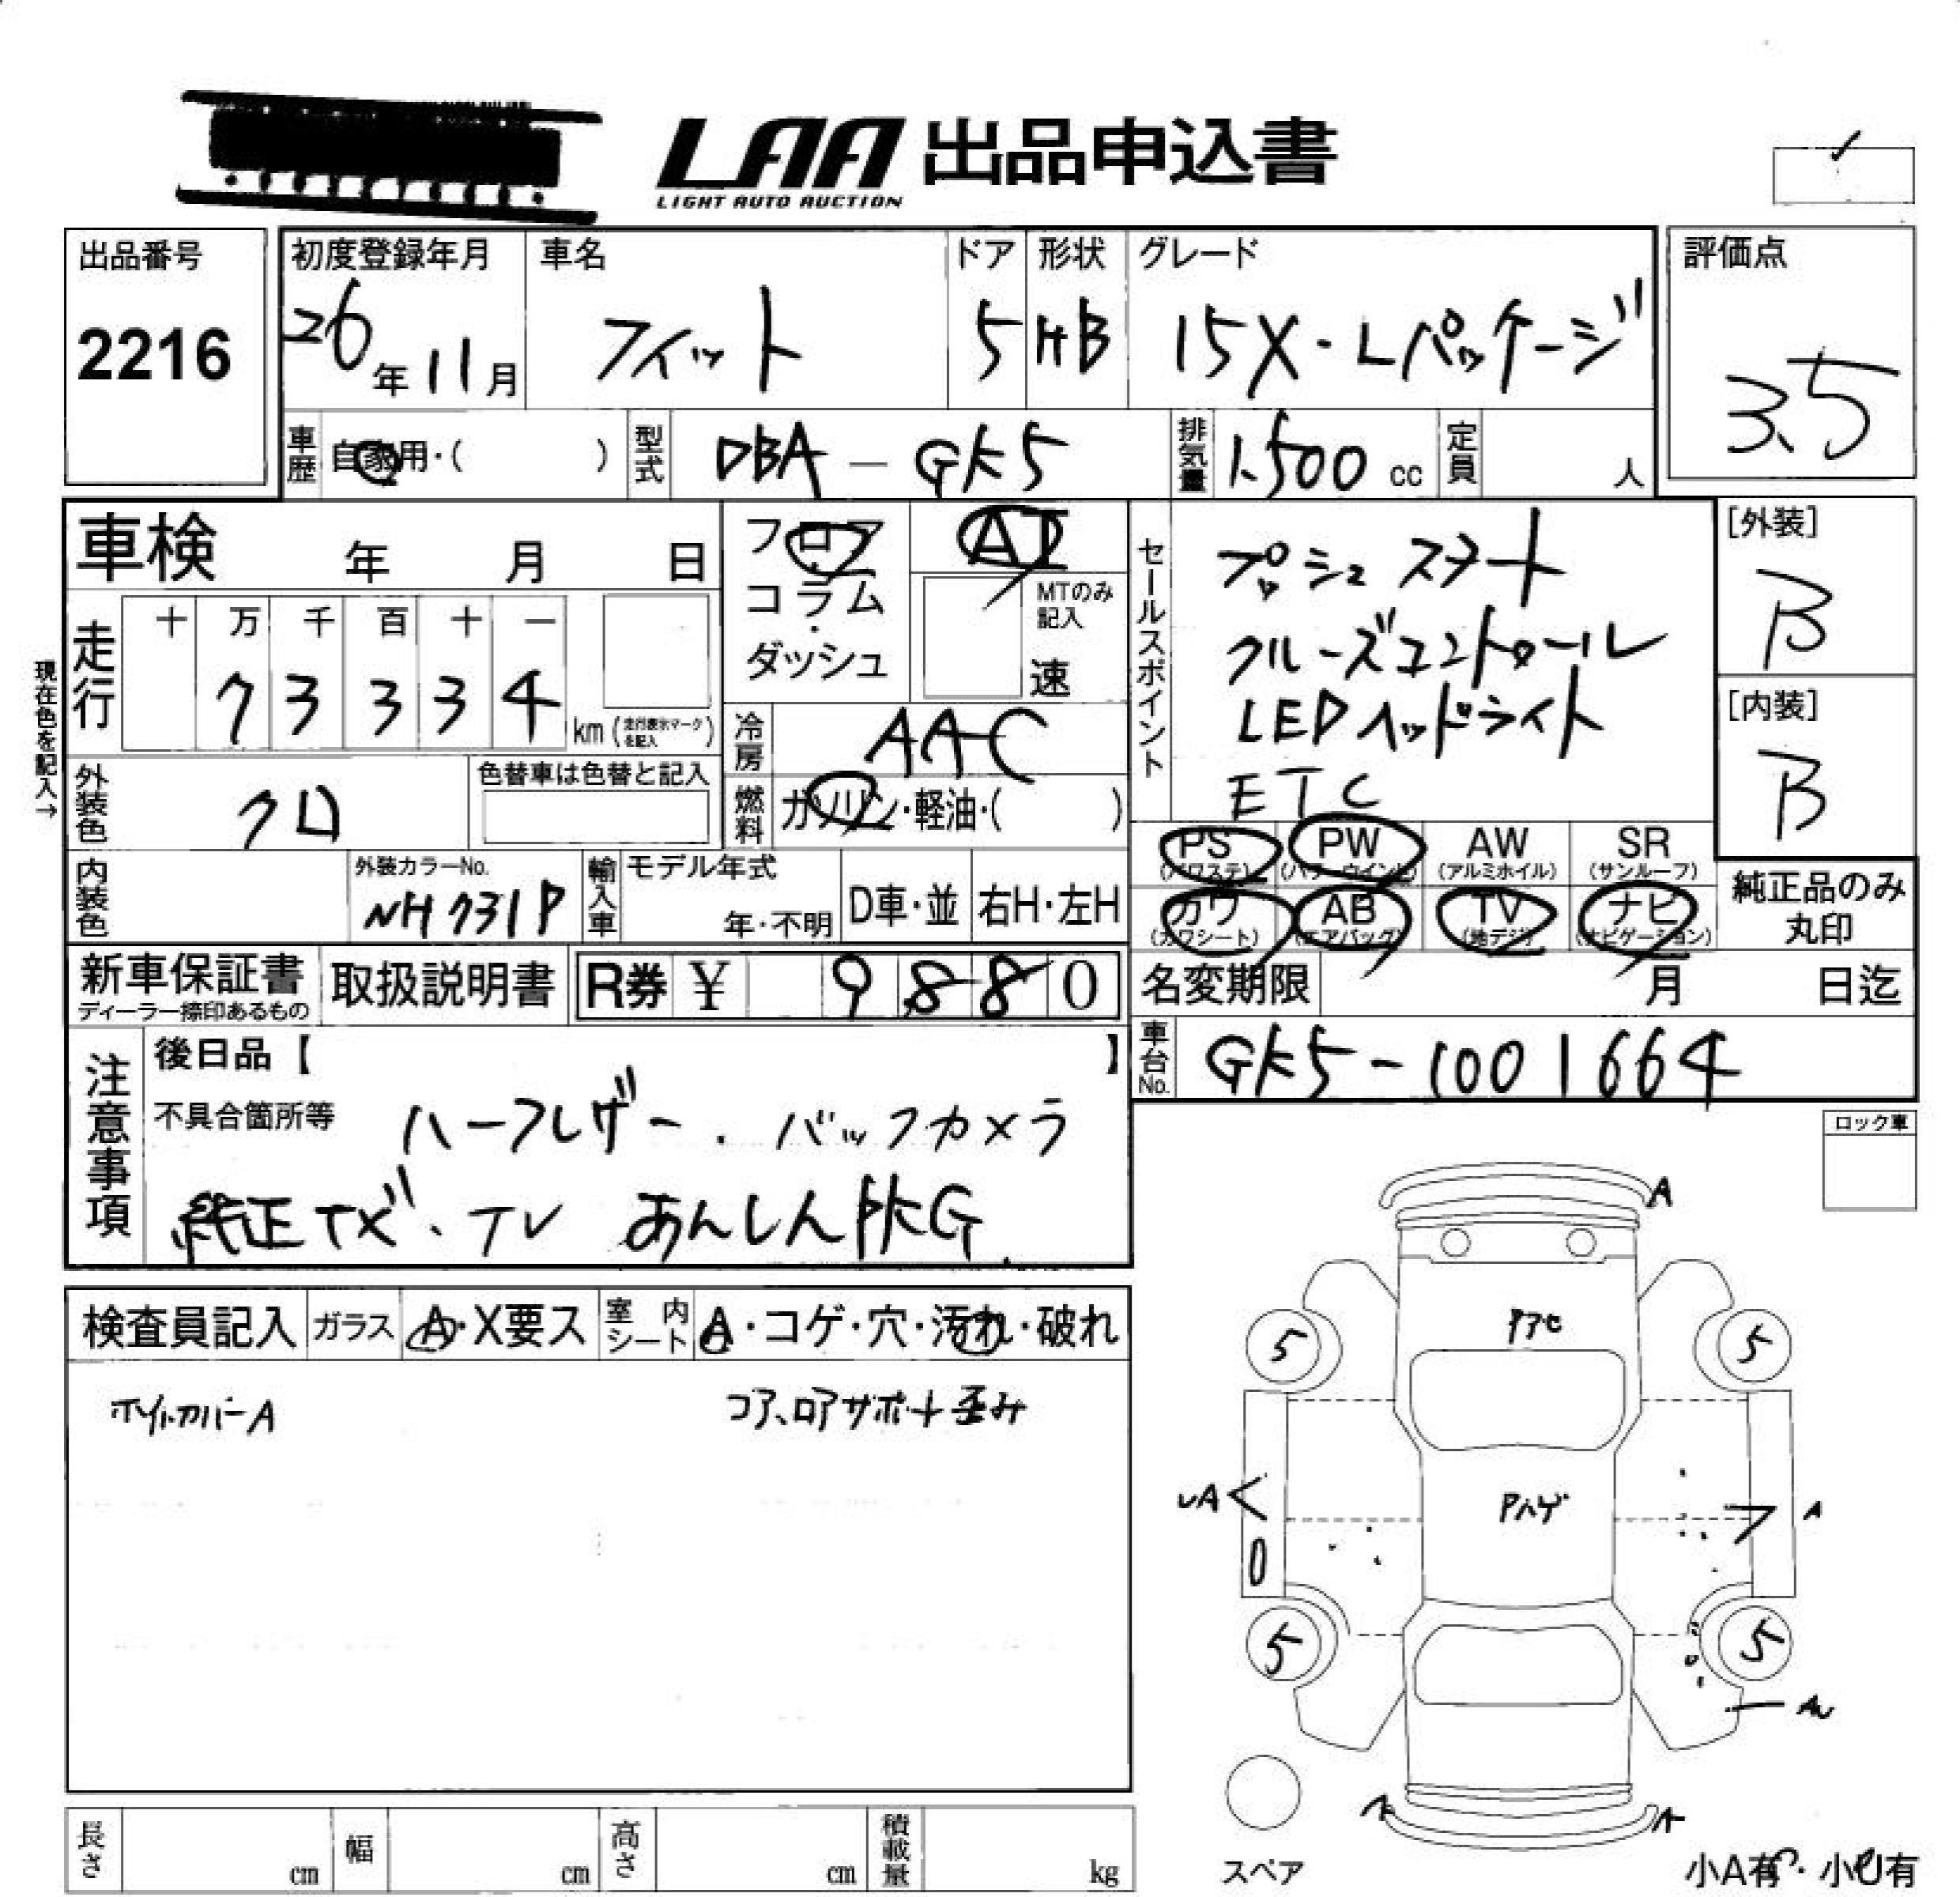 LAA 出品申込書
LIGHT AUTO AUCTION
出品番号
2216
初度登録年月
26年11月
車名
フィット
ドア
5
形状
HB
グレード
15X・Lパッケージ
評価点
3.5
車歴 自家用・( )
型式 DBA-GK5
排気量 1.500 cc
定員 人
車検 年 月 日
フロア・コラム・ダッシュ
AT
MTのみ記入
速
セールスポイント
プッシュスタート
クルーズコントロール
LEDヘッドライト
ETC
[外装]
B
[内装]
B
現在色を記入→
走行 十 万 千 百 十 一
7 3 3 3 4 km (走行表示マークを記入)
冷房 AAC
外装色 クロ
色替車は色替と記入
燃料 ガソリン・軽油・( )
PS (パワステ) PW (パワーウインド) AW (アルミホイル) SR (サンルーフ)
カワ (カワシート) AB (エアバッグ) TV (地デジ) ナビ (ナビゲーション)
純正品のみ丸印
内装色
外装カラーNo.
NH731P
輸入車 モデル年式 年・不明 D車・並 右H・左H
新車保証書
ディーラー捺印あるもの
取扱説明書
R券 ¥ 9 8 8 0
名変期限 月 日迄
車台No. GK5-1001664
注意事項
後日品【 】
不具合箇所等 ハーフレザー.バックカメラ
純正ナビ・TV あんしんPKG
ロック車
検査員記入 ガラス A・X要ス 室内シート A・コゲ・穴・汚れ・破れ
ホイルカバーA
コア、ロアサポート歪み
A
5 5
A
5 5
A
スペア
小A有・小U有
長さ cm 幅 cm 高さ cm 積載量 kg